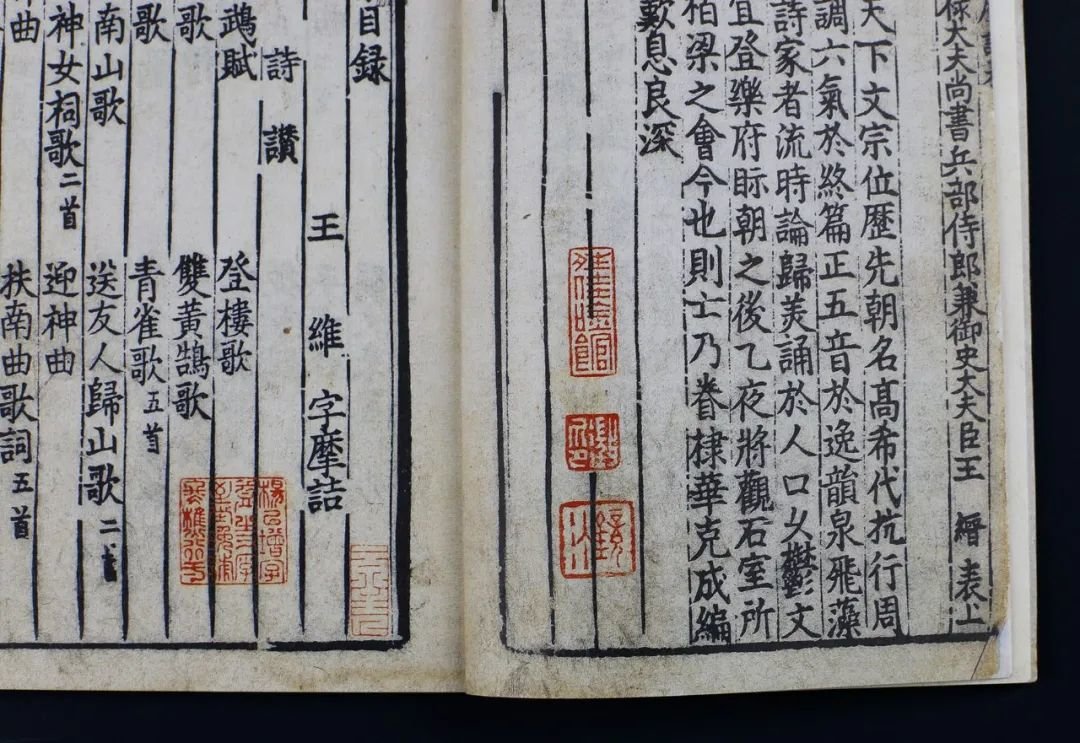 祿大夫尚書兵部侍郎兼御史大夫臣王 縉 表上
天下文宗位歷先朝名高希代抗行周
調六氣於終篇正五音於逸韻泉飛藻
詩家者流時論歸美誦於人口以鬱文
宜登樂府眎朝之後乙夜將觀石室所
柏梁之會今也則士乃眷棣華克成編
歎息良深
目録
王 維 字摩詰
詩 讃
鵡賦 登樓歌
歌 雙黃鵠歌
歌 青雀歌五首
南山歌 送友人歸山歌二首
神女祠歌二首 迎神曲
曲 扶南曲歌詞五首